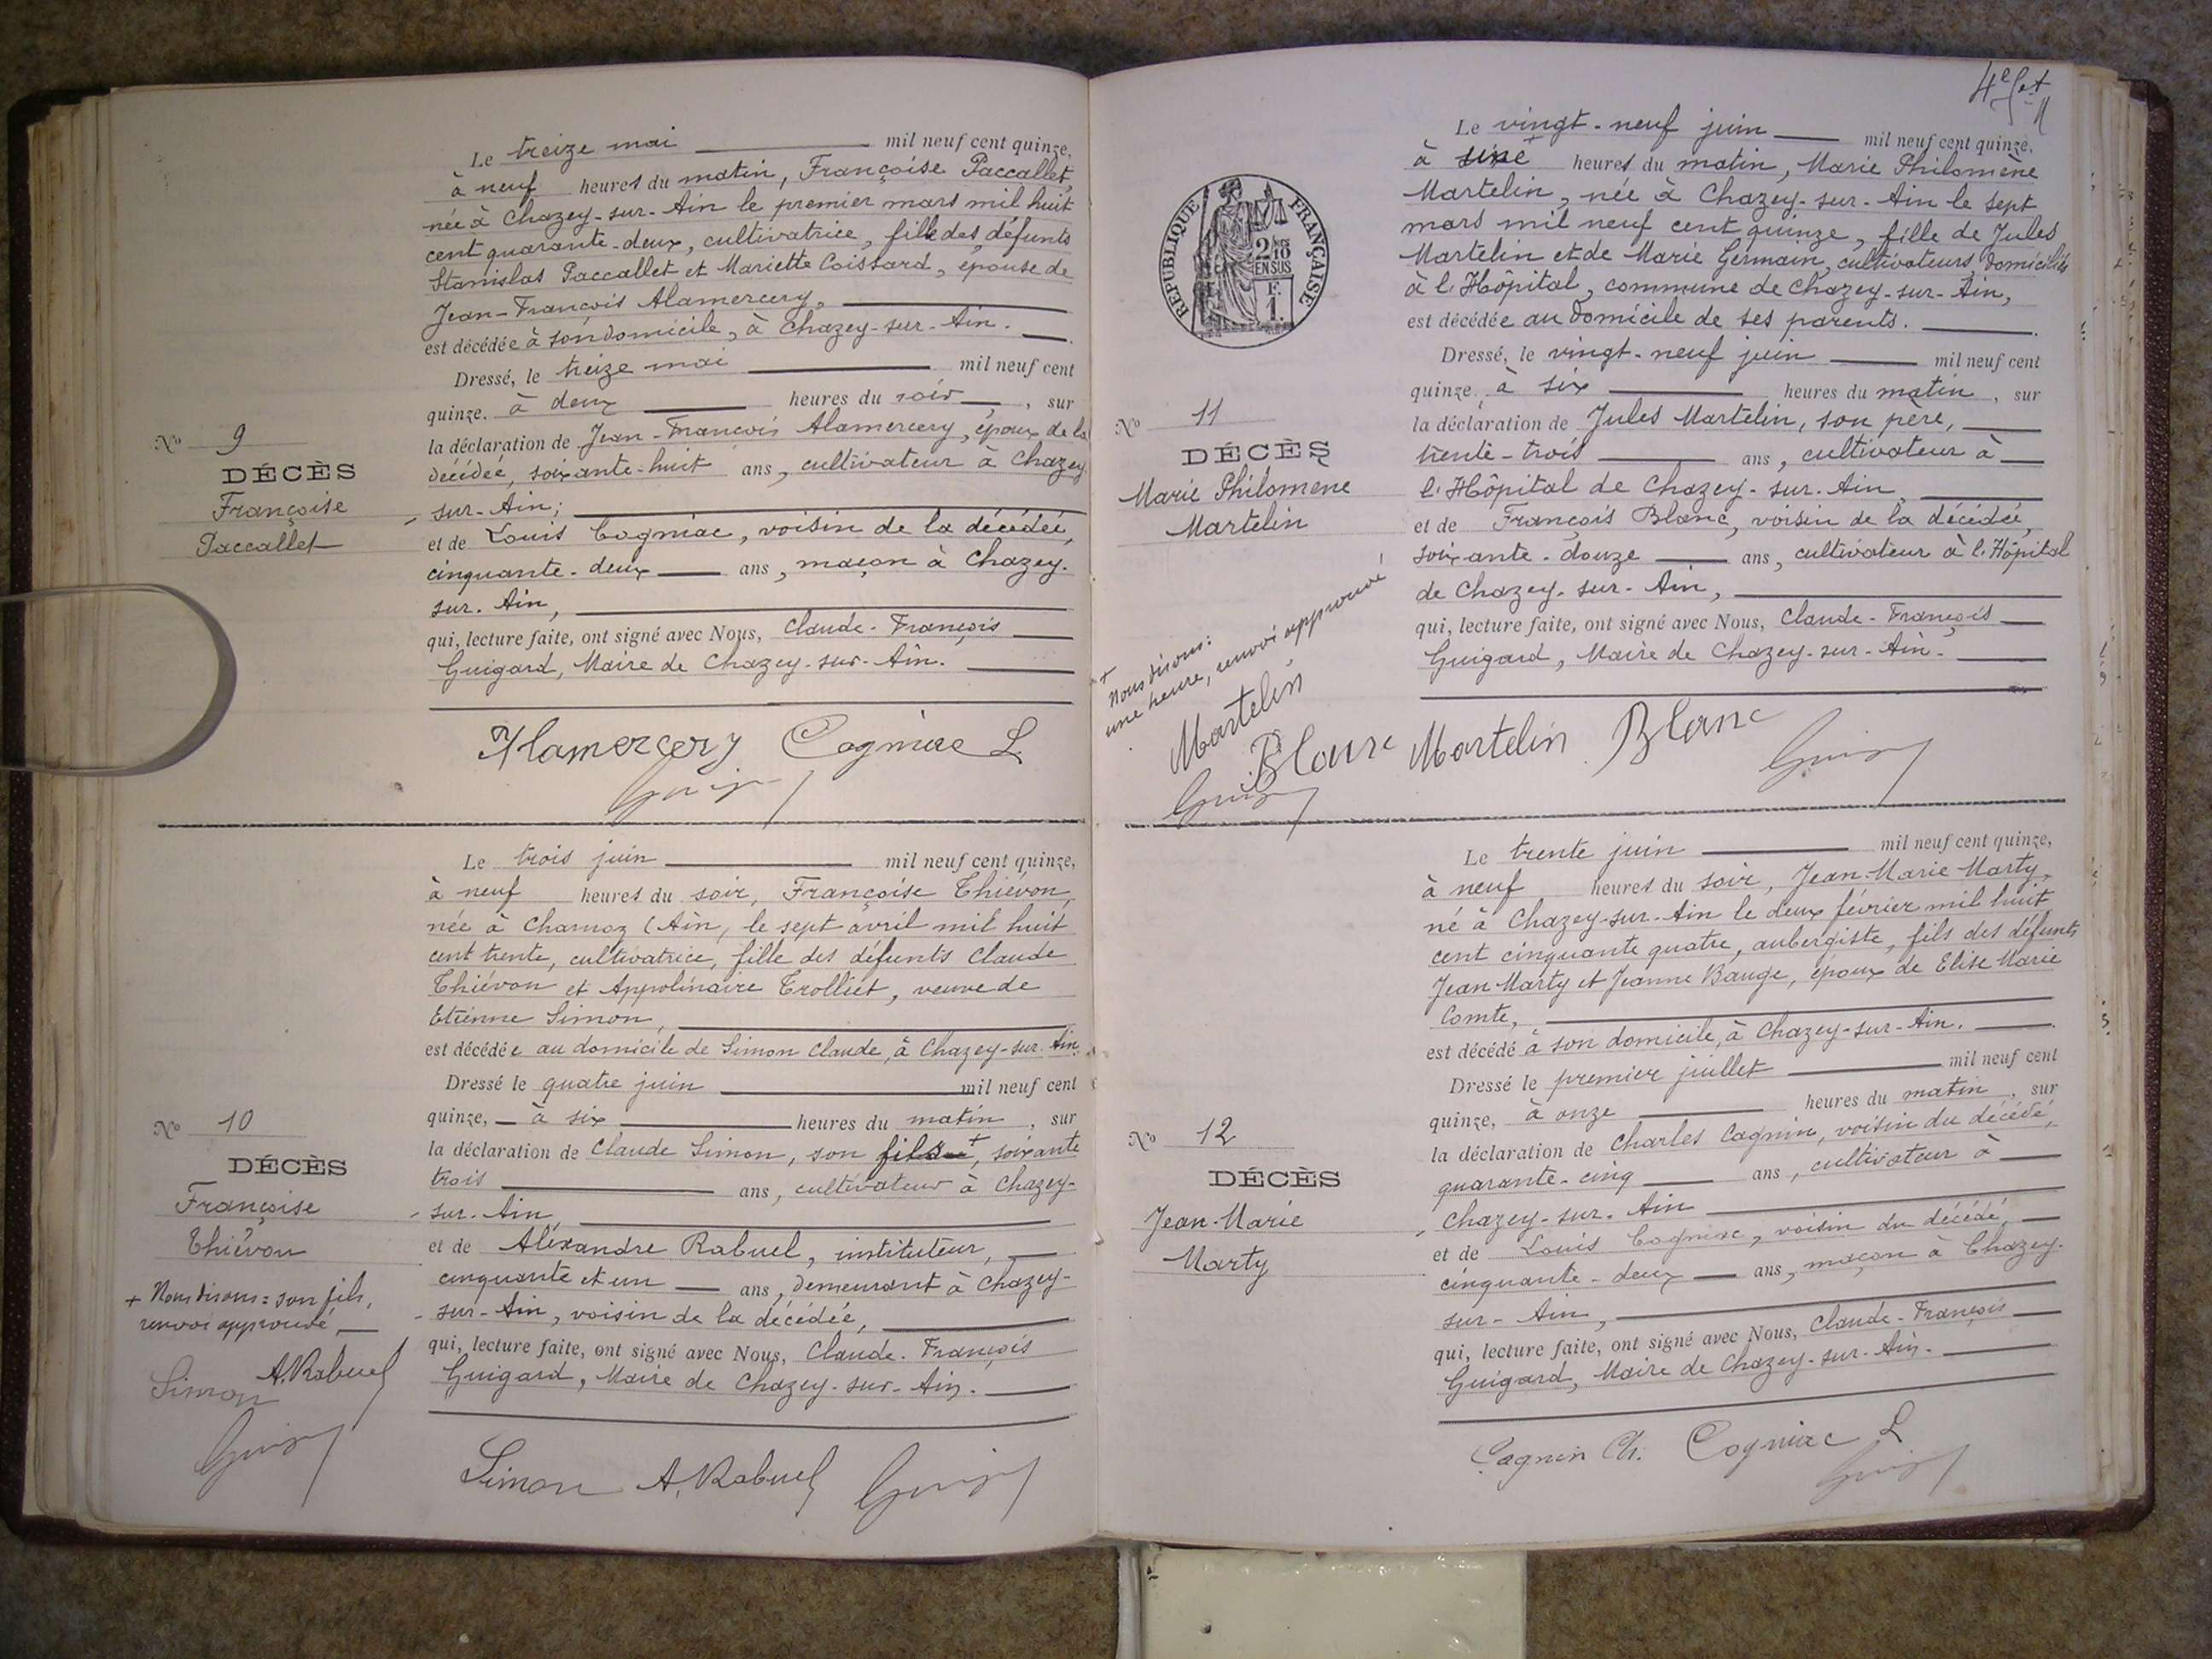 Le treize mai mil neuf cent quinze,
à neuf heures du matin, Françoise Paccallet,
née à Chazey-sur-Ain le premier mars mil huit
cent quarante-deux, cultivatrice, fille des défunts
Stanislas Paccallet et Mariette Coissard, épouse de
Jean-François Alamercery,
est décédée à son domicile, à Chazey-sur-Ain.
Dressé, le treize mai mil neuf cent
quinze, à deux heures du soir, sur
la déclaration de Jean-François Alamercery, époux de la
décédée, soixante-huit ans, cultivateur à Chazey-
sur-Ain;
et de Louis Cogniac, voisin de la décédée,
cinquante-deux ans, maçon à Chazey-
sur-Ain,
qui, lecture faite, ont signé avec Nous, Claude-François
Guigard, Maire de Chazey-sur-Ain.
No 9
DÉCÈS
Françoise
Paccallet
Alamercery Cogniac L
Le trois juin mil neuf cent quinze,
à neuf heures du soir, Françoise Thiévon,
née à Charnoz (Ain, le sept avril mil huit
cent trente, cultivatrice, fille des défunts Claude
Thiévon et Appolinaire Trolliet, veuve de
Etienne Simon,
est décédée au domicile de Simon Claude, à Chazey-sur-Ain.
Dressé le quatre juin mil neuf cent
quinze, à six heures du matin, sur
la déclaration de Claude Simon, son fils +, soixante
trois ans, cultivateur à Chazey-
sur-Ain
et de Aléxandre Rabuel, instituteur,
cinquante et un ans, demeurant à Chazey-
sur-Ain, voisin de la décédée,
qui, lecture faite, ont signé avec Nous, Claude-François
Guigard, Maire de Chazey-sur-Ain.
No 10
DÉCÈS
Françoise
Thiévon
+ Nous disons: son fils,
renvoi approuvé
A. Rabuel
Simon
Simon A. Rabuel
4e fet
Le vingt-neuf juin mil neuf cent quinze,
à une heures du matin, Marie Philomène
Martelin, née à Chazey-sur-Ain le sept
mars mil neuf cent quinze, fille de Jules
Martelin et de Marie Germain, cultivateurs, domiciliés
à l'Hôpital, commune de Chazey-sur-Ain,
est décédée au domicile de ses parents.
Dressé, le vingt-neuf juin mil neuf cent
quinze, à six heures du matin, sur
la déclaration de Jules Martelin, son père,
trente-trois ans, cultivateur à
l'Hôpital de Chazey-sur-Ain
et de François Blanc, voisin de la décédée,
soixante-douze ans, cultivateur à l'Hôpital
de Chazey-sur-Ain,
qui, lecture faite, ont signé avec Nous, Claude-François
Guigard, Maire de Chazey-sur-Ain.
REPUBLIQUE FRANÇAISE
2/10
EN SUS
F.
1.
No 11
DÉCÈS
Marie Philomène
Martelin
+
Nous disons:
une heure, renvoi approuvé
Martelin
Blanc Martelin Blanc
Le trente juin mil neuf cent quinze,
à neuf heures du soir, Jean-Marie Marty,
né à Chazey-sur-Ain le deux février mil huit
cent cinquante quatre, aubergiste, fils des défunts
Jean Marty et Jeanne Bauge, époux de Elise Marie
Comte,
est décédé à son domicile, à Chazey-sur-Ain.
Dressé le premier juillet mil neuf cent
quinze, à onze heures du matin, sur
la déclaration de Charles Cagnin, voisin du décédé,
quarante-cinq ans, cultivateur à
Chazey-sur-Ain
et de Louis Cogniac, voisin du décédé,
cinquante-deux ans, maçon à Chazey-
sur-Ain,
qui, lecture faite, ont signé avec Nous, Claude-François
Guigard, Maire de Chazey-sur-Ain.
No 12
DÉCÈS
Jean-Marie
Marty
Cagnin Ch. Cogniac L